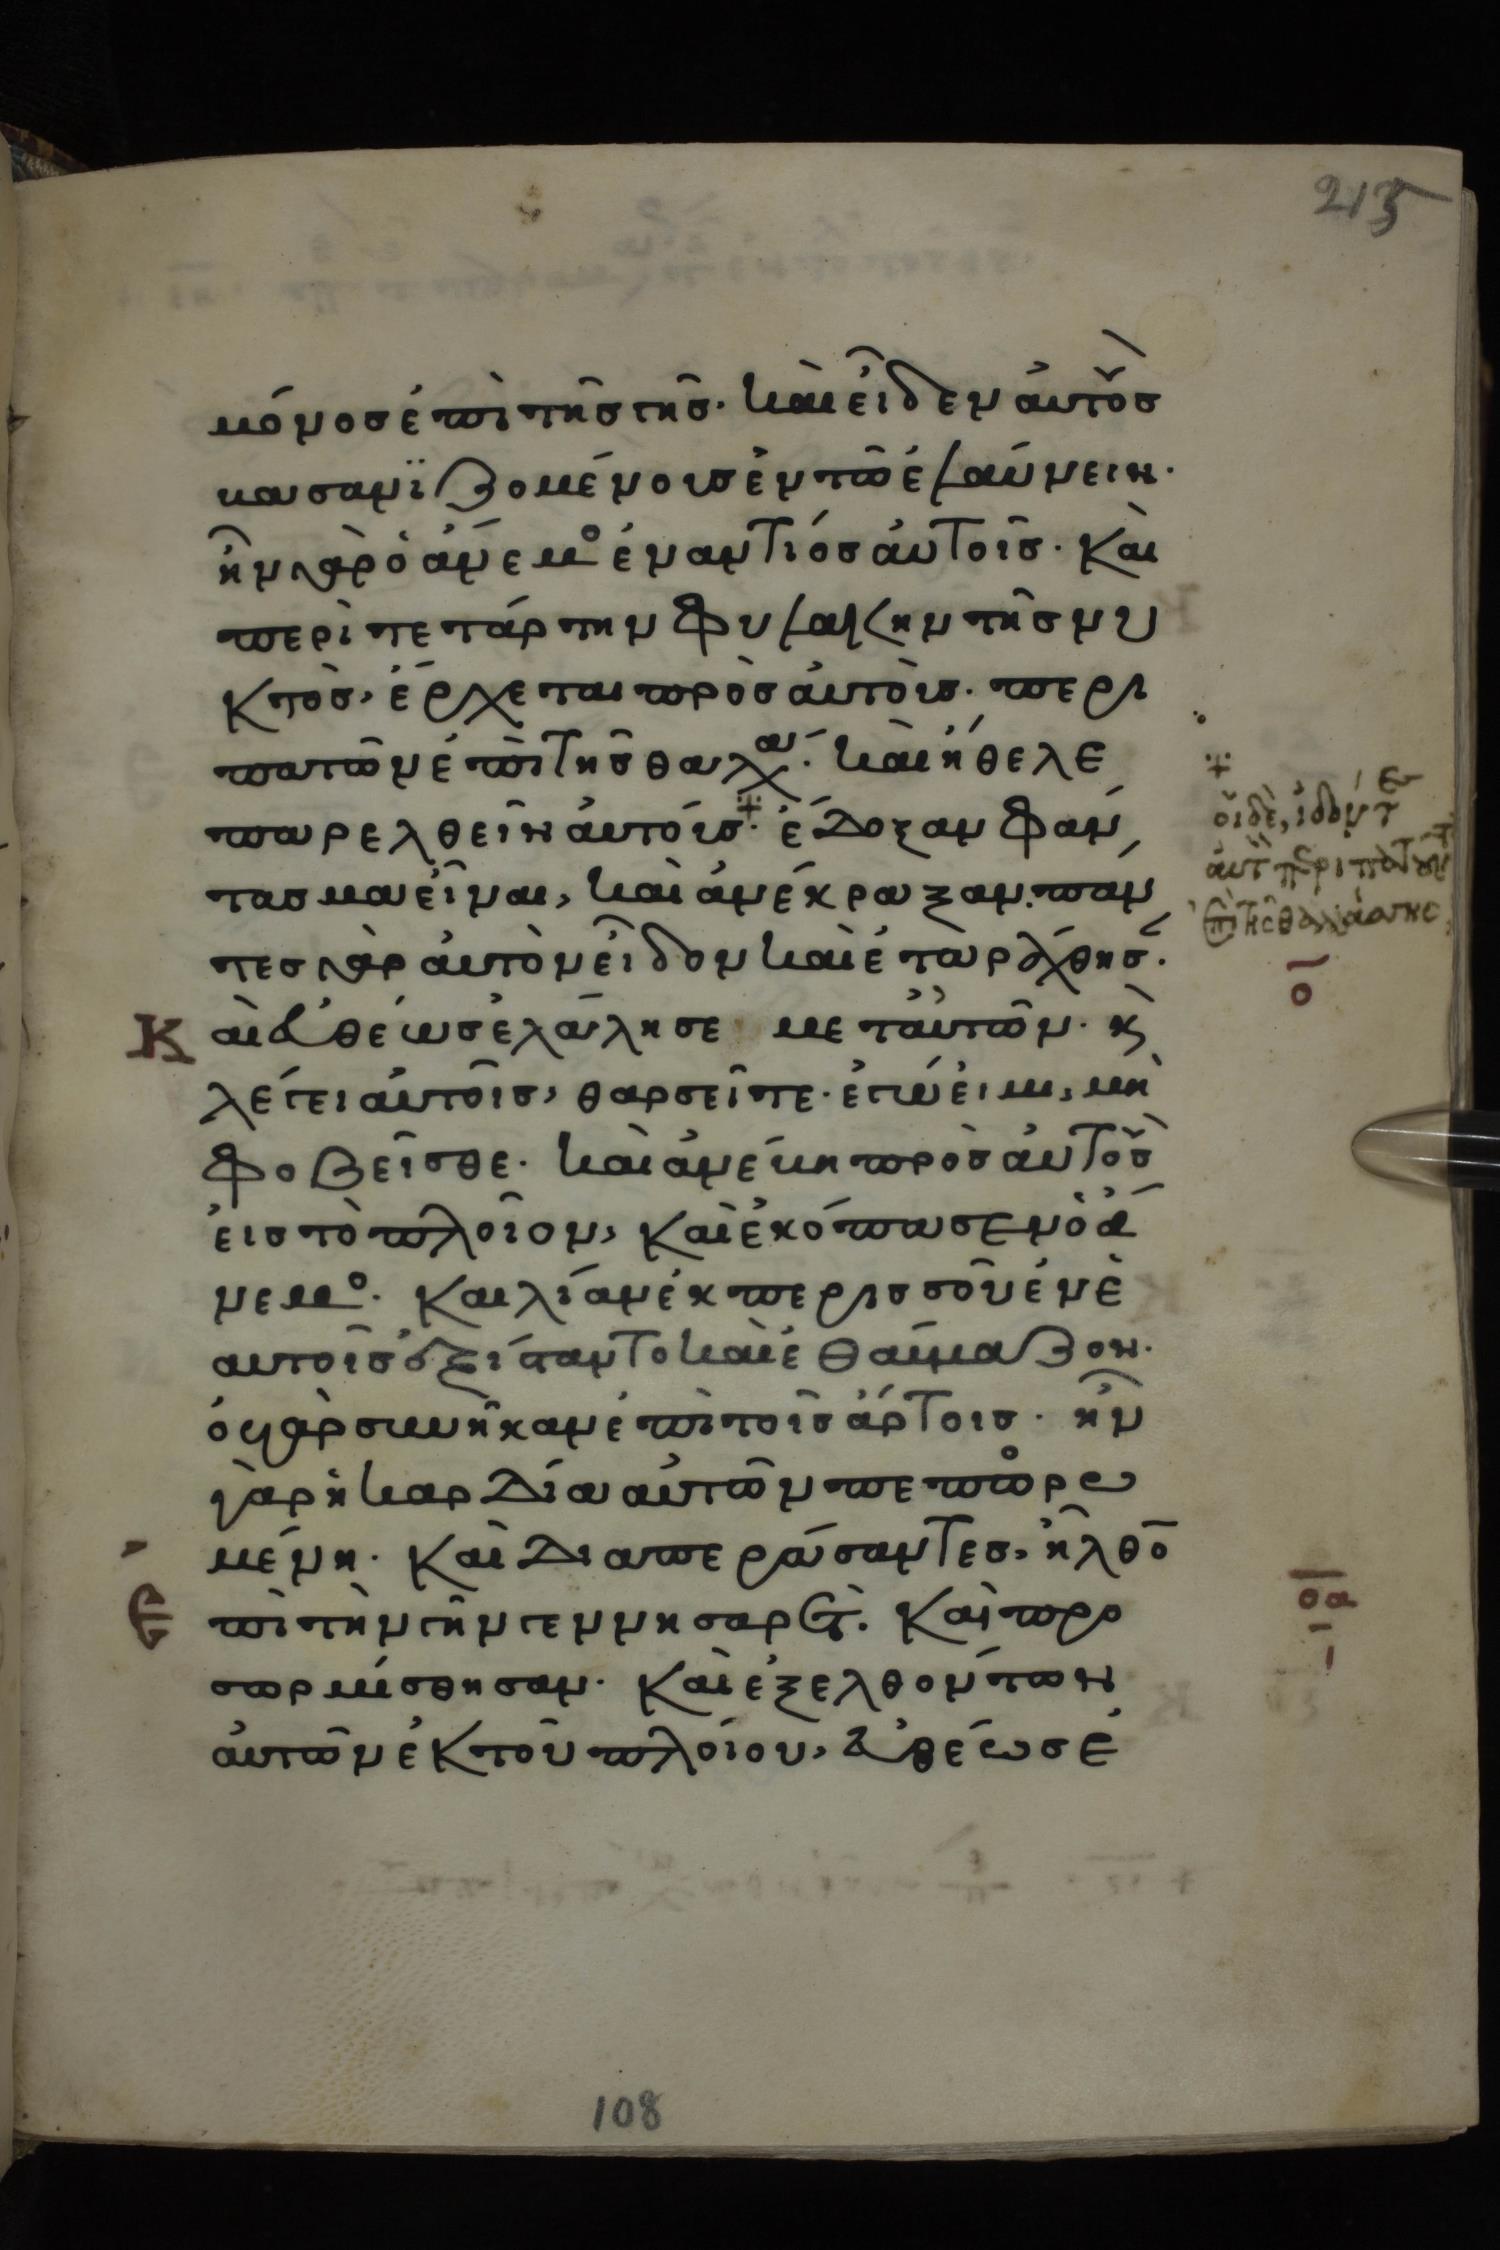 215
μόνος ἐπὶ τῆς γῆς· καὶ εἶδεν αὐτοὺς
βασανϊζομένους ἐν τῶ ἐλαύνειν·
ἦν γὰρ ὁ ἄνεμος ἐναντίος αὐτοῖς· Καὶ
περὶ τετάρτην φυλακὴν τῆς νυ
κτὸς, ἔρχεται πρὸς αὐτοὺς· περι
πατῶν ἐπὶ τῆς θαλάσσης· καὶ ἤθελε
παρελθεῖν αὐτούς ⁜ ἔδοξαν φάν
τασμα εἶναι, καὶ ἀνέκραξαν· πάν
τες γὰρ αὐτὸν εἶδον καὶ ἐταράχθησαν·
Καὶ εὐθέως ἐλάλησε μετ' αὐτῶν· κὶ
λέγει αὐτοῖς, θαρσεῖτε· ἐγώ εἰμι, μὴ
φοβεῖσθε· καὶ ἀνέβη πρὸς αὐτοὺς
εἰς τὸ πλοῖον, καὶ ἐκόπασεν ὁ ἄ
νεμος· Καὶ λίαν ἐκ περισσοῦ ἐν ἑ
αυτοῖς ἐξίσταντο καὶ ἐθαύμαζον·
οὐ γὰρ συνῆκαν ἐπὶ τοῖς ἄρτοις· ἦν
γὰρ ἡ καρδία αὐτῶν πεπωρω
μένη· Καὶ διαπεράσαντες, ἦλθο̄
Ἐπὶ τὴν γῆν γεννησαρέτ· Καὶ προ
σωρμίσθησαν· Καὶ ἐξελθόντων
αὐτῶν ἐκ τοῦ πλοίου, εὐθέως ἐ
⁜
οἱ δὲ, ἰδόντες
αὐτὸν περιπατοῦντα
ἐπὶ τῆς θαλάσσης,
ο̄
ο̄ᾱ
108